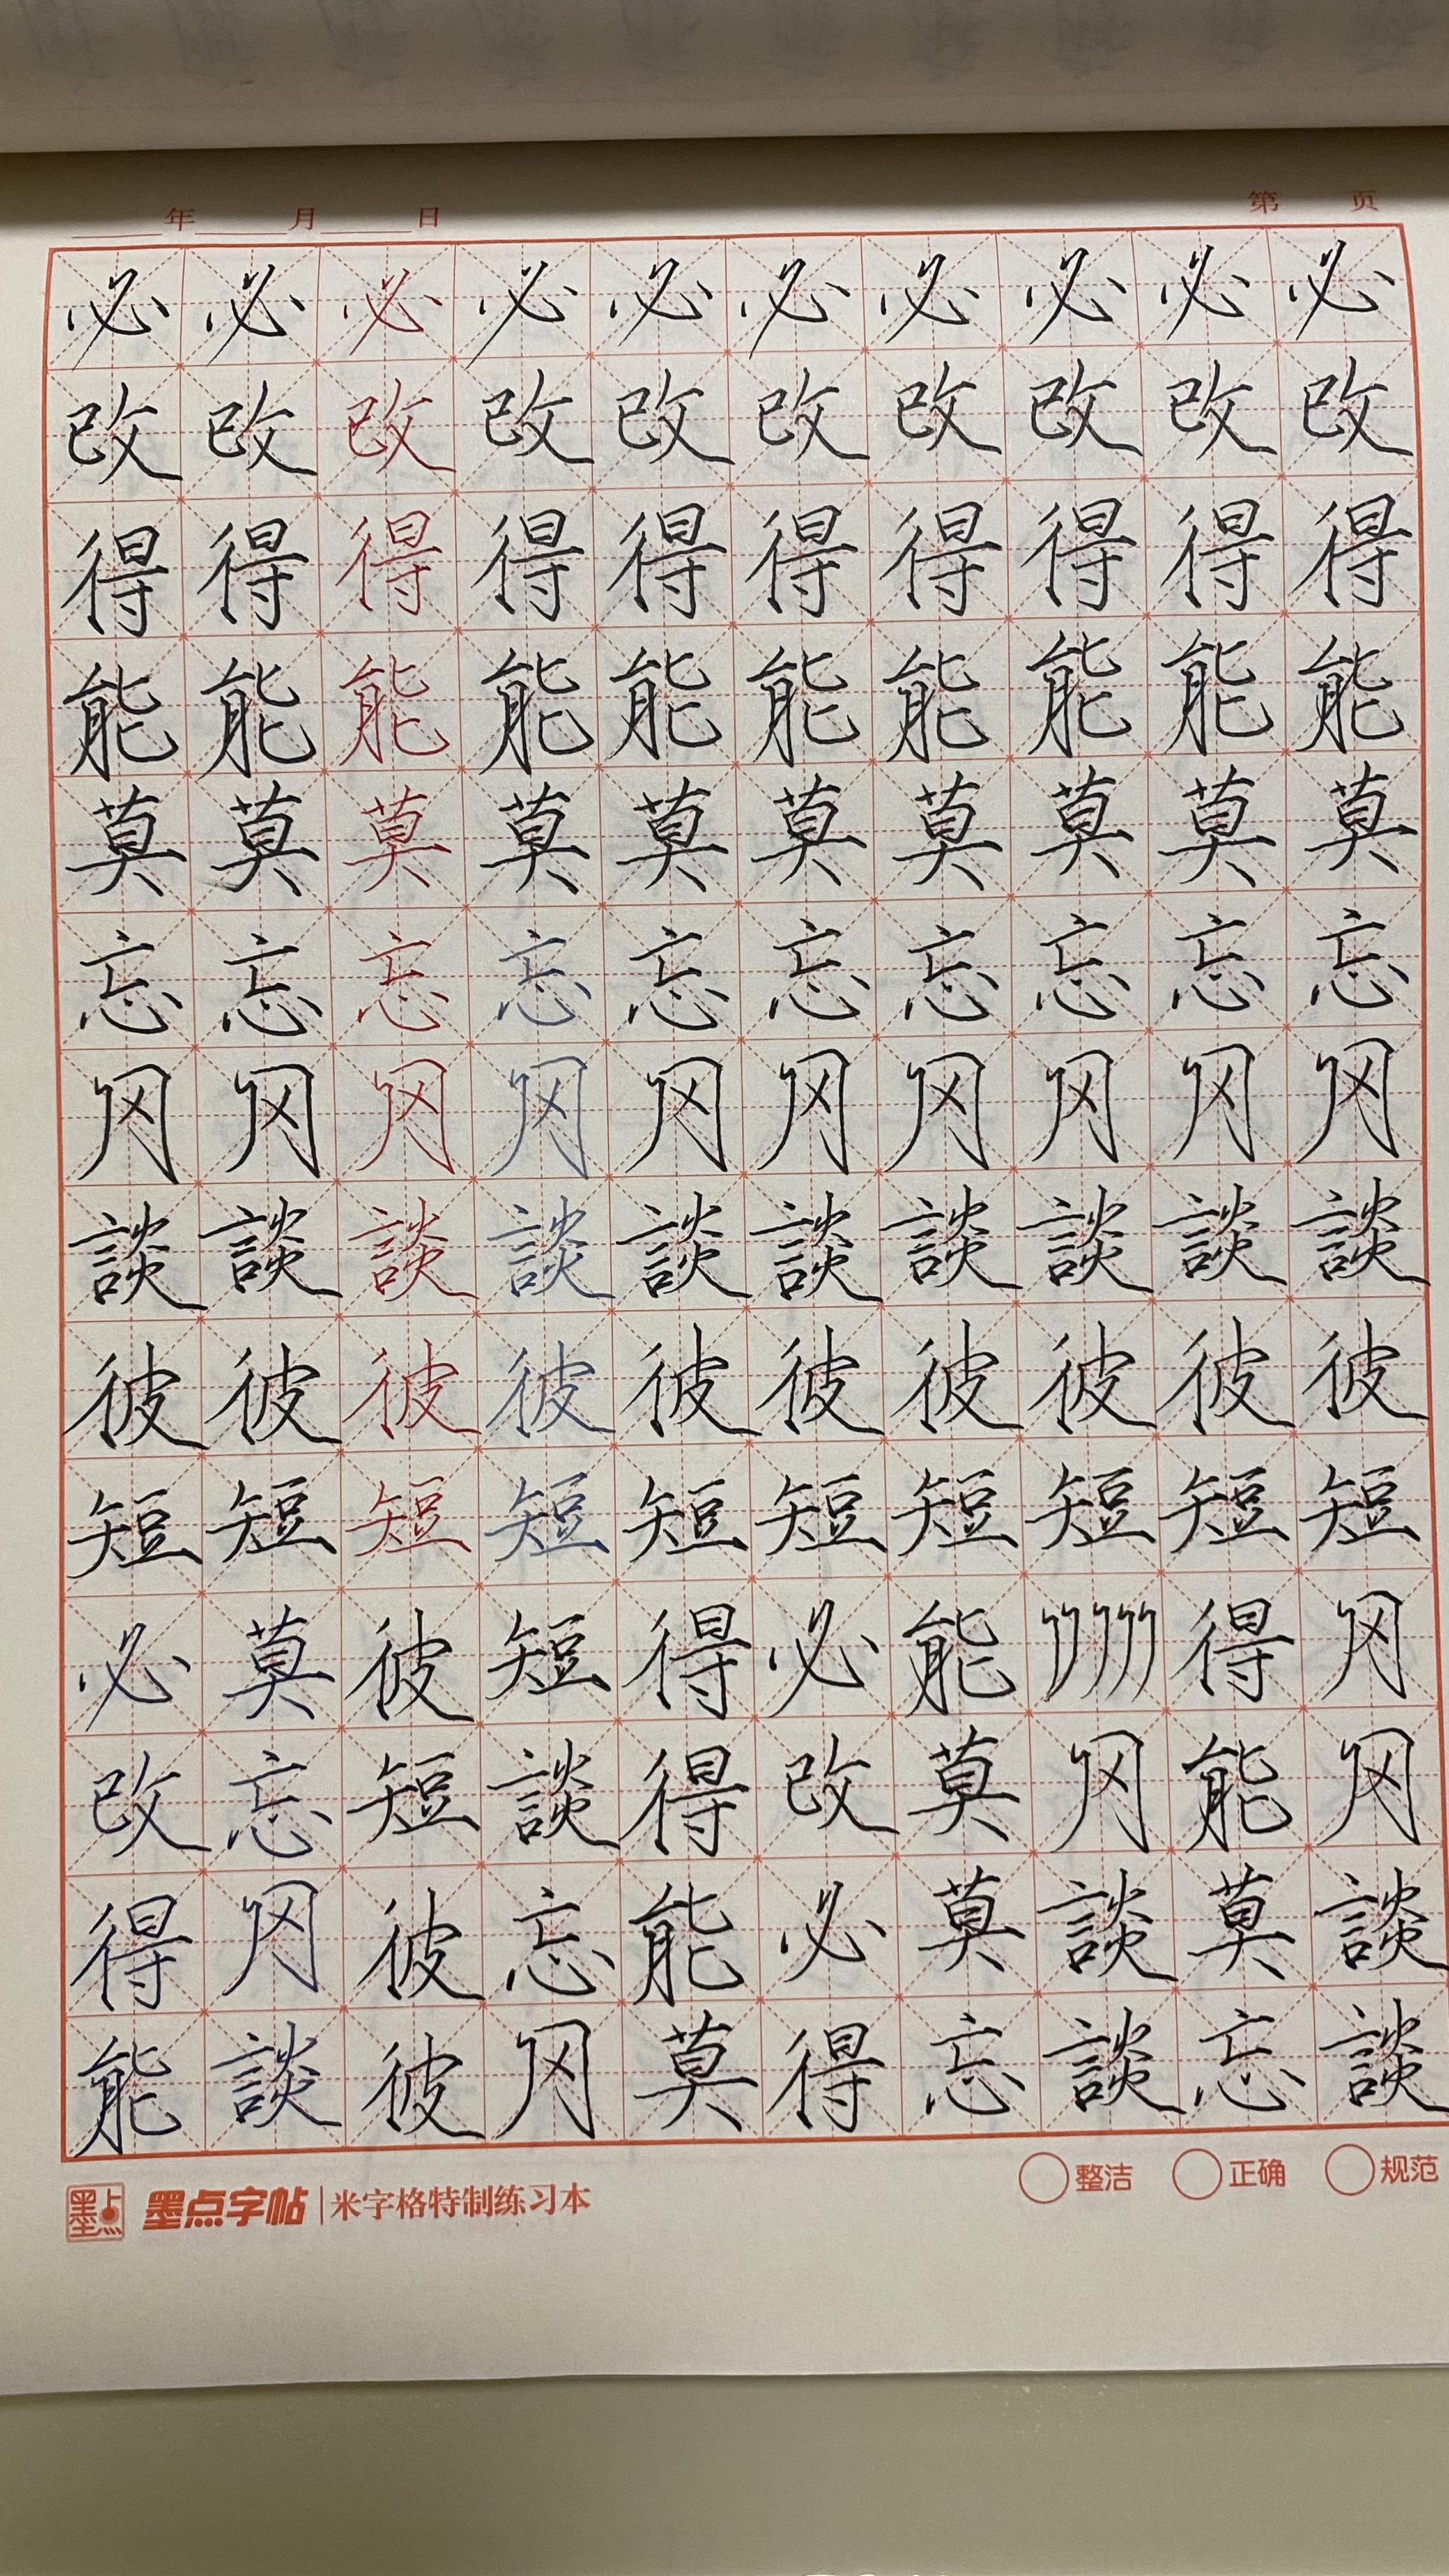 年 月 日 第 页
必必必必必必必必必必
改改改改改改改改改改
得得得得得得得得得得
能能能能能能能能能能
莫莫莫莫莫莫莫莫莫莫
忘忘忘忘忘忘忘忘忘忘
冈冈冈冈冈冈冈冈冈冈
談談談談談談談談談談
彼彼彼彼彼彼彼彼彼彼
短短短短短短短短短短
必莫彼短得必能得冈
改忘短談得改莫冈能冈
得冈彼忘能必莫談莫談
能談彼冈莫得忘談忘談
整洁 正确 规范
墨点 墨点字帖|米字格特制练习本